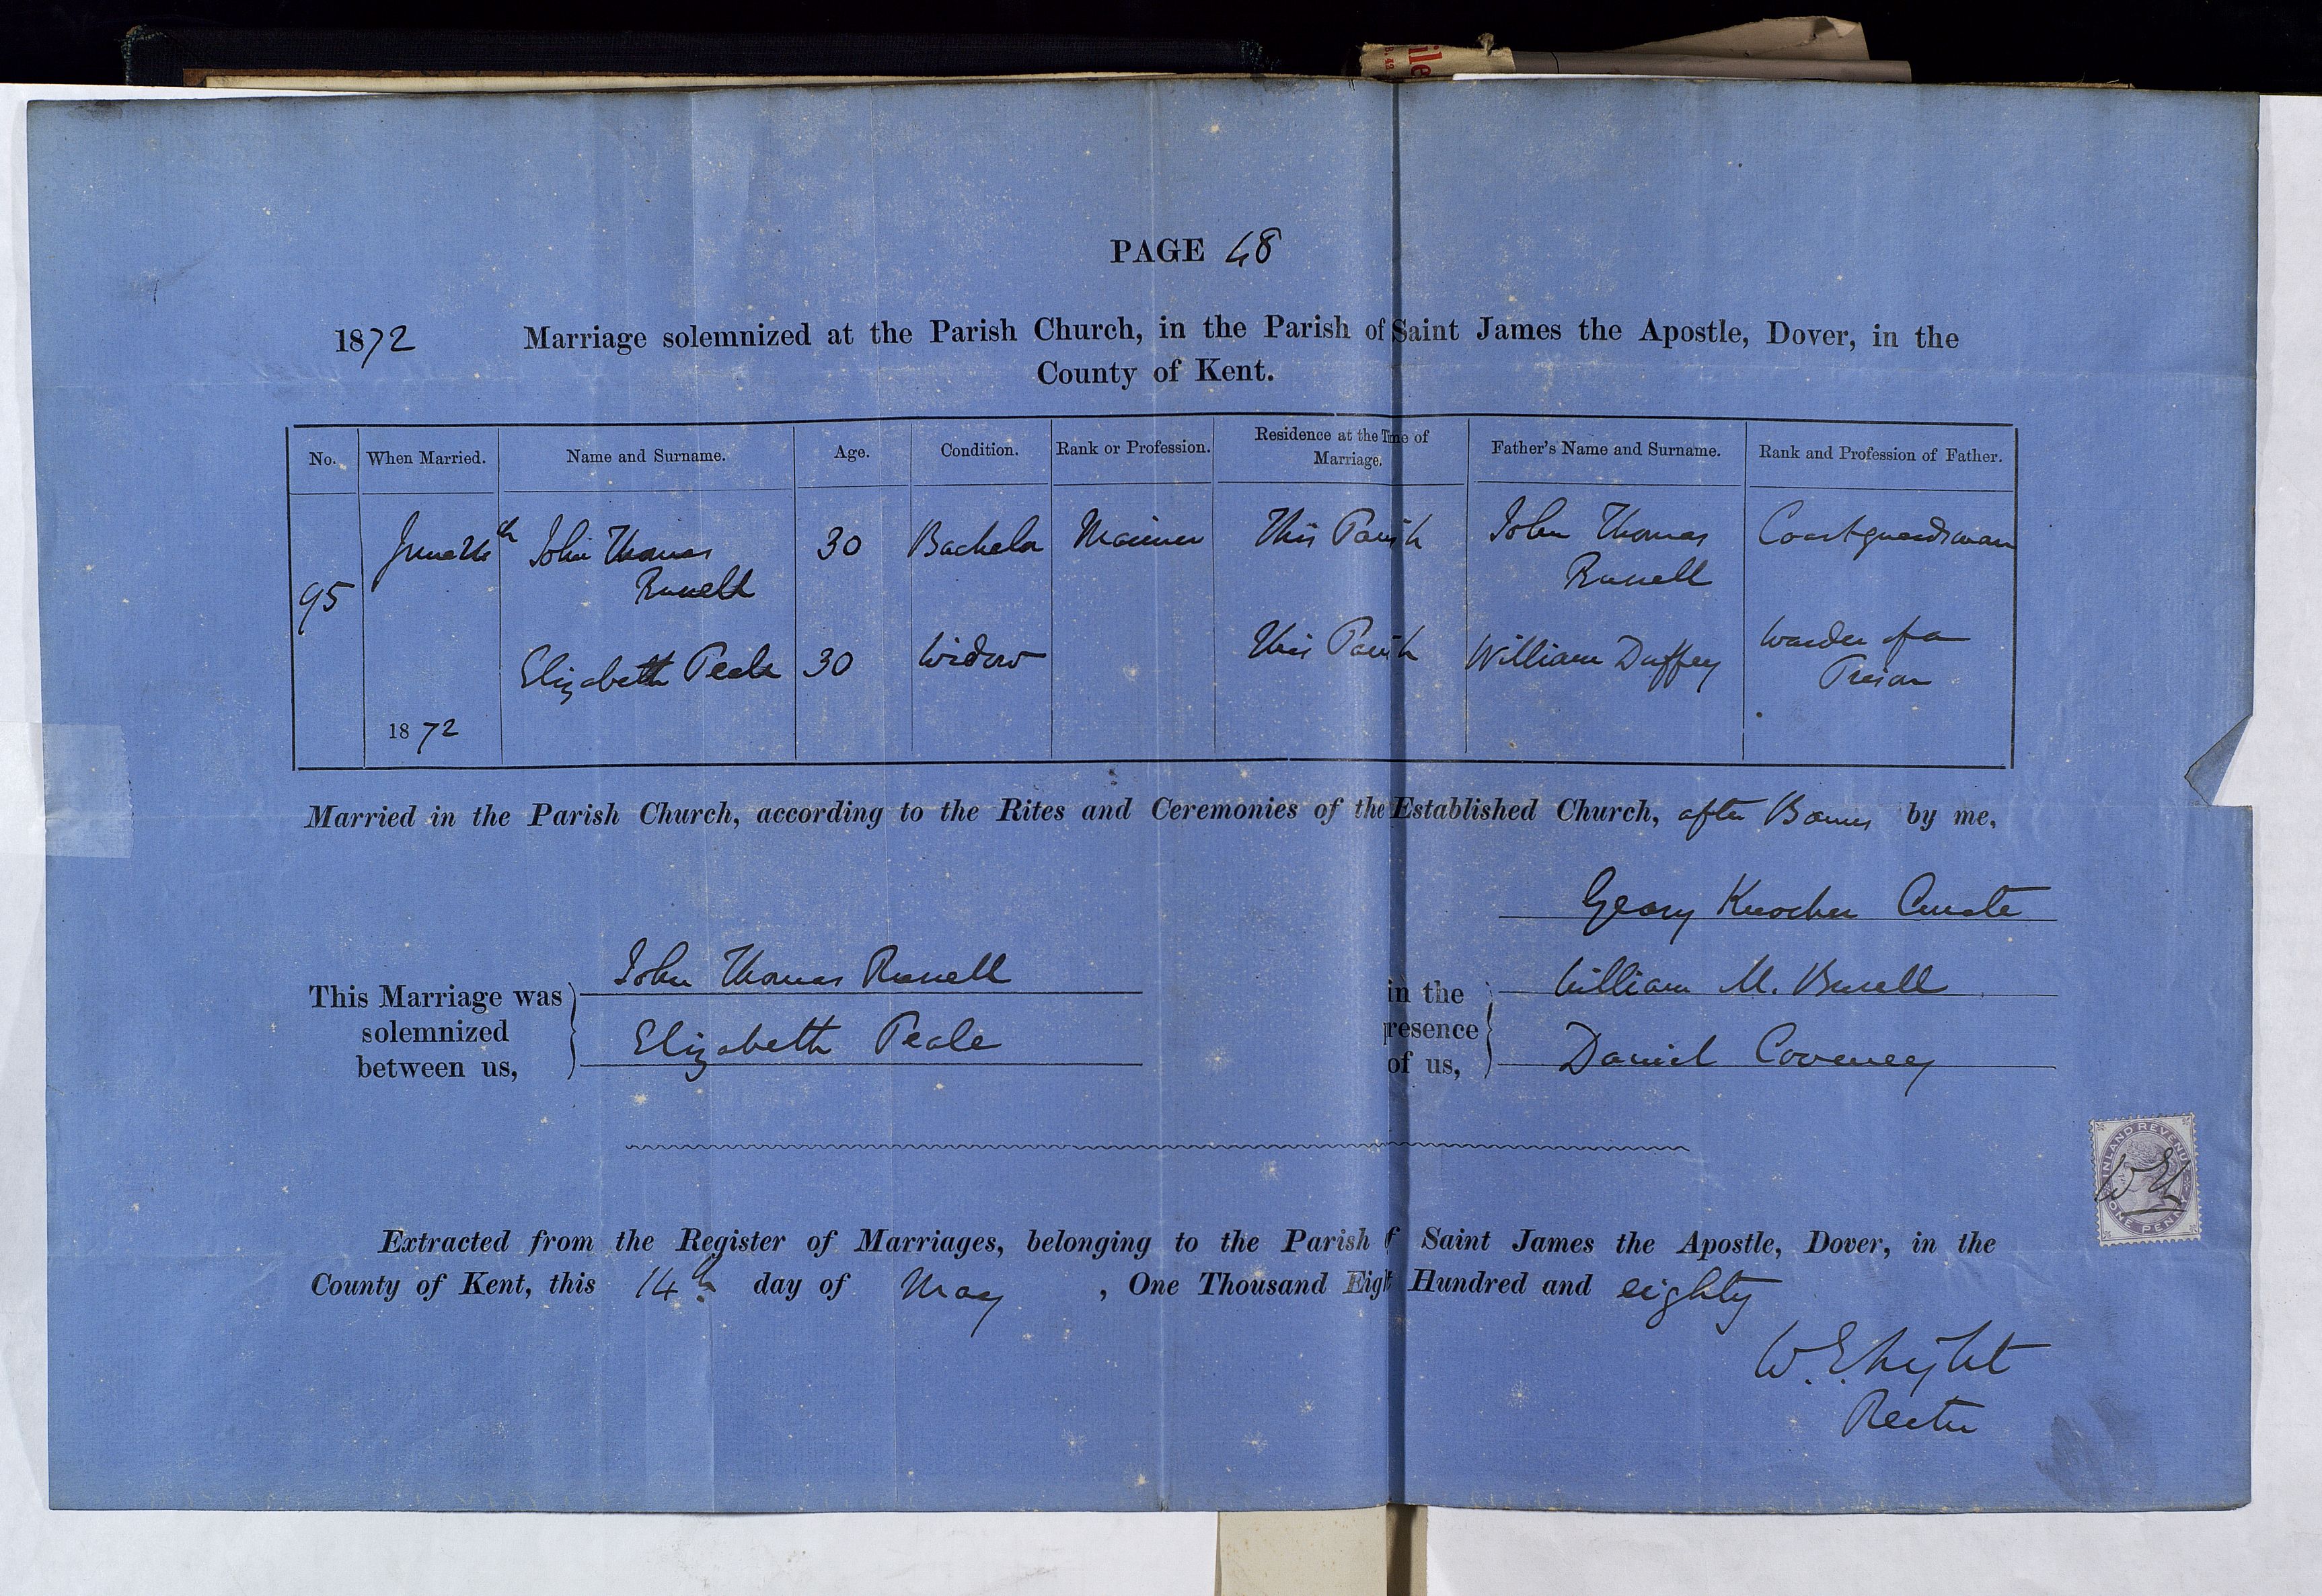 ile
B. 42
PAGE 48
1872 Marriage solemnized at the Parish Church, in the Parish of Saint James the Apostle, Dover, in the
County of Kent.
No. When Married. Name and Surname. Age. Condition. Rank or Profession. Residence at the Time of Marriage. Father's Name and Surname. Rank and Profession of Father.
95 June 24th John Thomas Russell 30 Bachelor Mariner This Parish John Thomas Russell Coastguardsman
Elizabeth Peale 30 Widow This Parish William Duffey Warder of a Prison
1872
Married in the Parish Church, according to the Rites and Ceremonies of the Established Church, after Banns by me,
Geary Knocker Curate
This Marriage was solemnized between us,
John Thomas Russell
Elizabeth Peale
in the presence of us,
William M. Bussell
Daniel Coveney
Extracted from the Register of Marriages, belonging to the Parish of Saint James the Apostle, Dover, in the
County of Kent, this 14th day of May, One Thousand Eight Hundred and eighty
W. E. Light
Rector
INLAND REVENUE
ONE PENNY
WEL